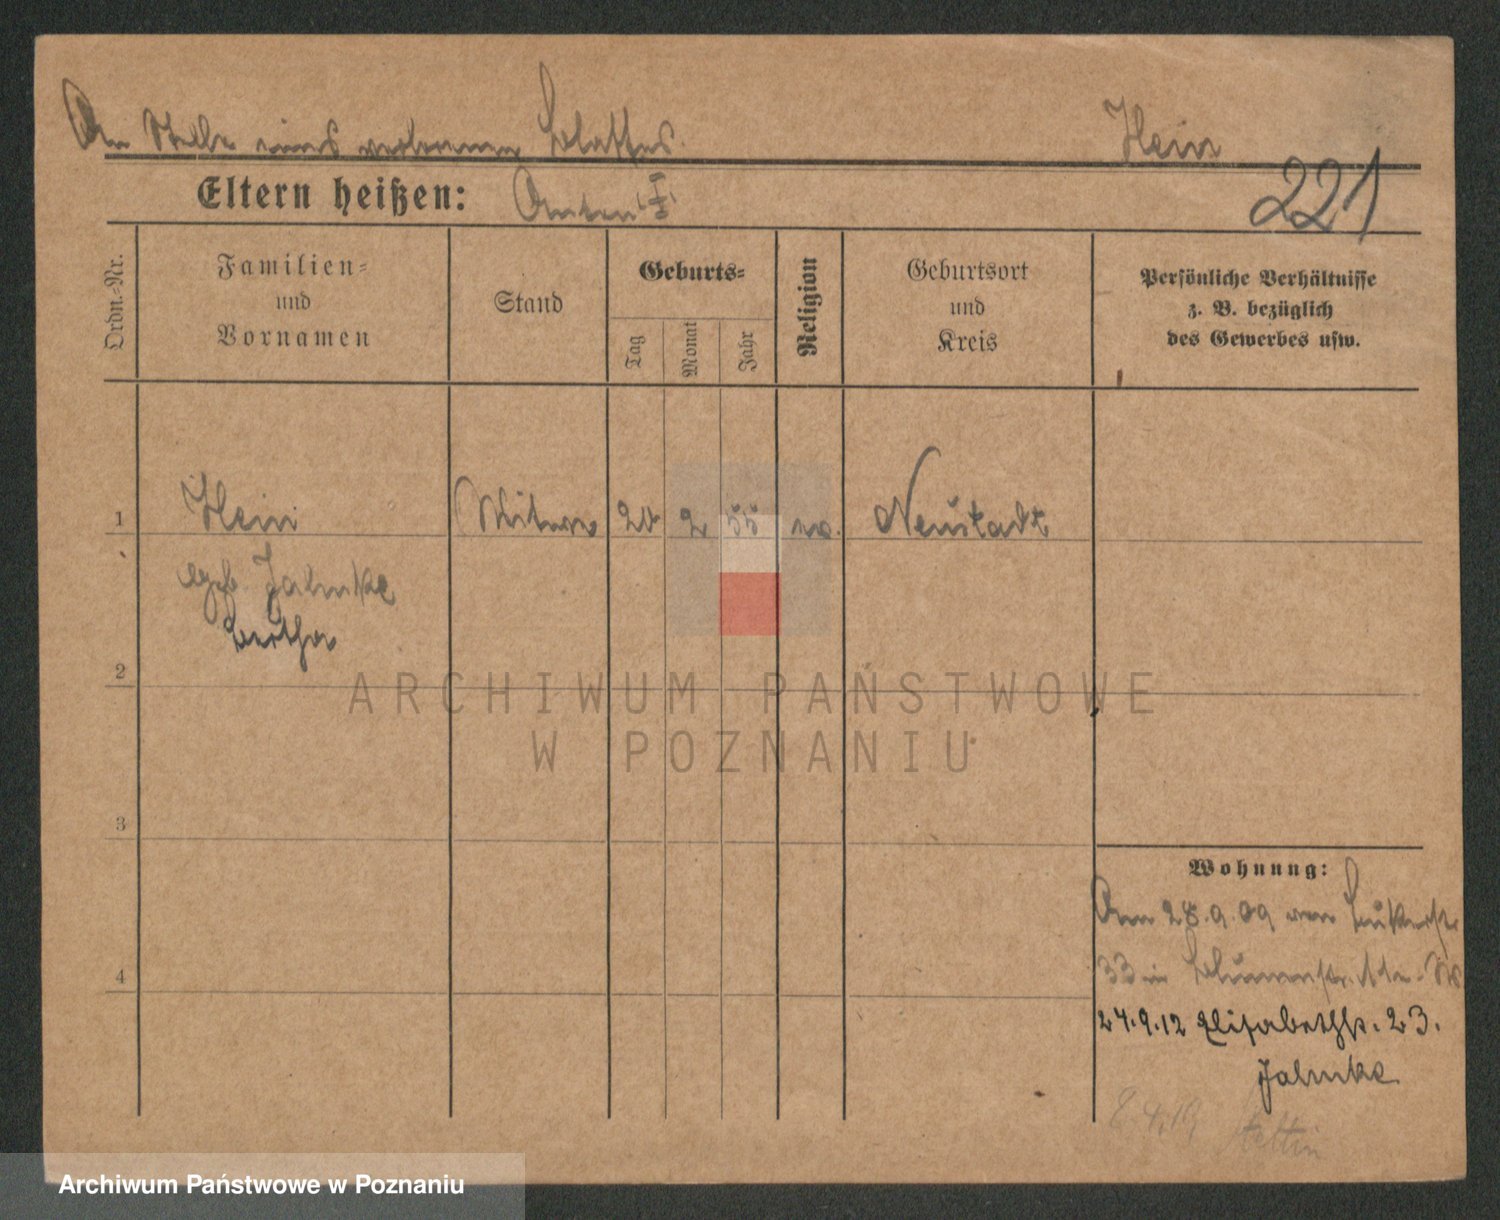 An Stelle eines verlorenen Blattes. Hein
Eltern heißen: Anton (I) 221
Ordn.-Nr.
Familien-
und
Vornamen
Stand
Geburts-
Tag
Monat
Jahr
Religion
Geburtsort
und
Kreis
Persönliche Verhältnisse
z. B. bezüglich
des Gewerbes usw.
1 Hein Witwe 20 2 55 ev. Neustadt
geb. Jahnke
Bertha
2
3
4
Wohnung:
Am 28.9.09 von
33 in Blumenstr.
24.9.12 Elisabethstr. 23.
Jahnke
8.4.19 Stettin
ARCHIWUM PAŃSTWOWE
W POZNANIU
Archiwum Państwowe w Poznaniu